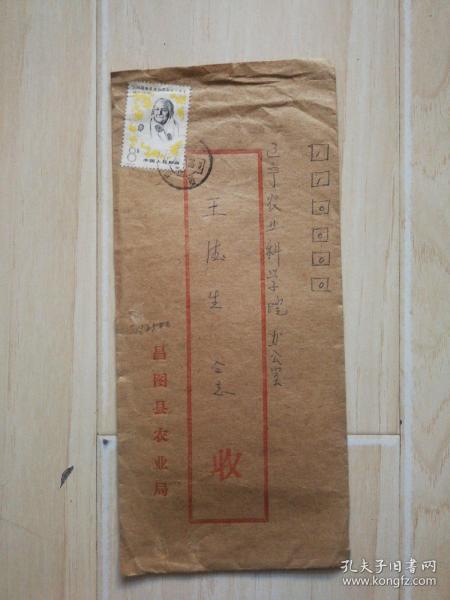 110000
辽宁农业科学院办公室
王德生 仝志
收
昌图县农业局
8分
中国人民邮政
孔夫子旧书网
www.kongfz.com